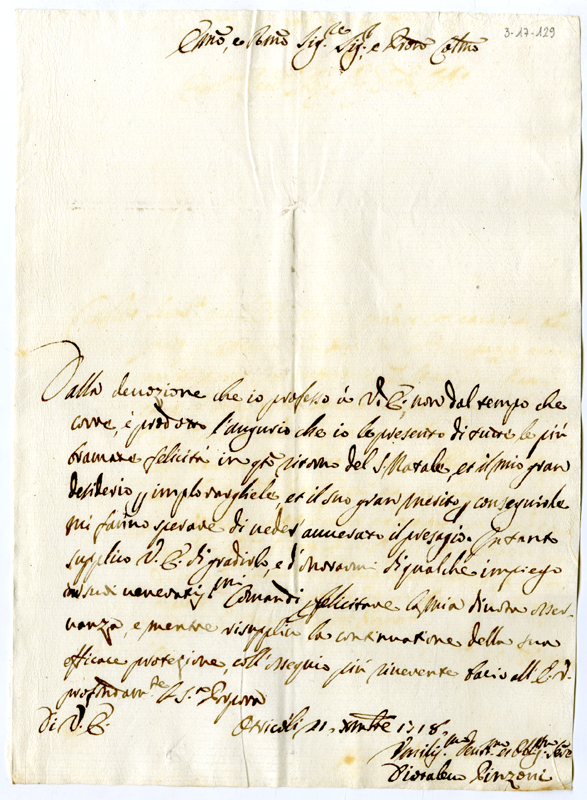 3-17-129
Emo, e Rmo Sig.re Sig.r e Pron Colmo
Dalla deuozione che io professo à V. E., non dal tempo che
corre, è prodotto l'augurio che io le presento di tutte le più
bramate felicità in qto ritorno del S. Natale, et il mio gran
desiderio p implorarghele, et il suo gran merito p conseguirle
mi fanno sperare di ueder auuerato il presagio. Intanto
supplico V. E. di gradirlo, e d'onorarmi di qualche impiego
de suoi ueneratiss.mi Comandi p felicitare la mia diuota osser-
uanza, e mentre risupplico la continuatione della sua
efficace protezione, coll'ossequio più riuerente bacio all' E. V.
profondam.te la S.a Porpora
Di V. E. Otricoli 21. Xmbre 1718
Vmiliss.mo Deuot.mo et Obblig.mo Sere
Pinzoni